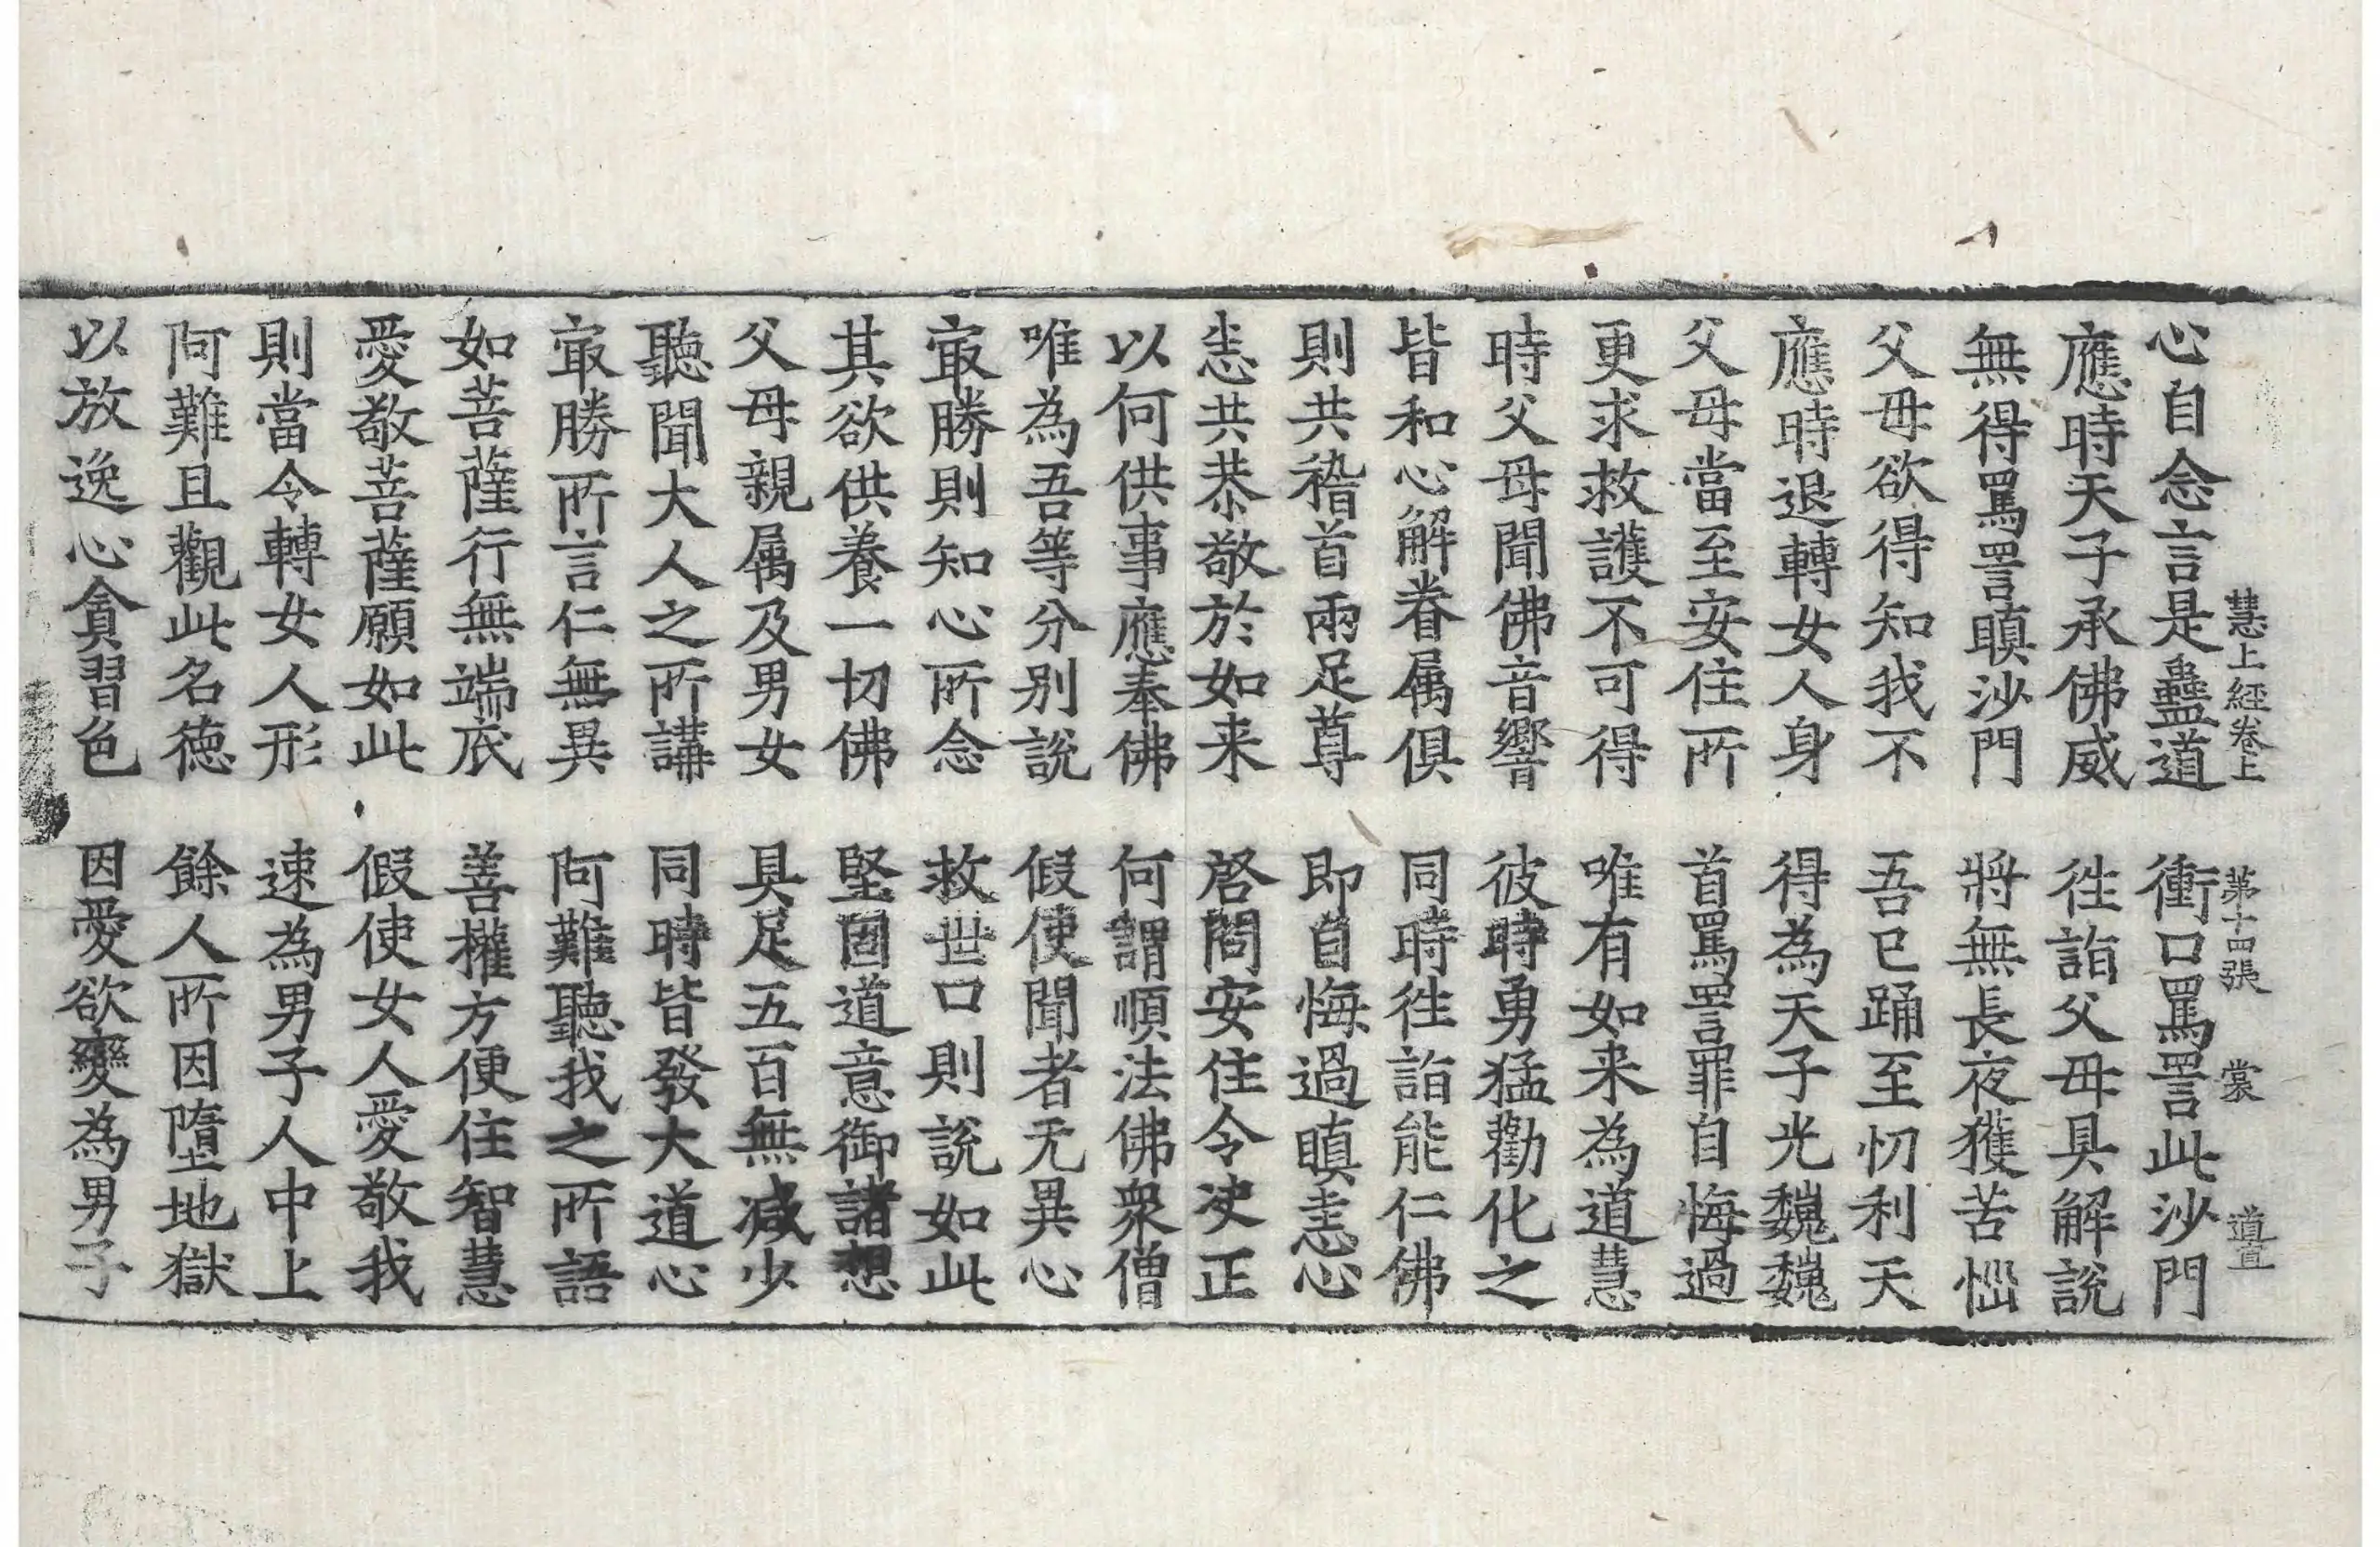 慧上經卷上 第十四張 裳 道宣
心自念言是蠱道 衝口罵詈此沙門
應時天子承佛威 徃詣父母具解說
無得罵詈瞋沙門 將無長夜獲苦惱
父母欲得知我不 吾已踊至忉利天
應時退轉女人身 得為天子光巍巍
父母當至安住所 首罵詈罪自悔過
更求救護不可得 唯有如来為道慧
時父母聞佛音響 彼時勇猛勸化之
皆和心解眷属俱 同時徃詣能仁佛
則共稽首兩足尊 即自悔過瞋恚心
恚共恭敬於如来 啓問安住令决正
以何供事應奉佛 何謂順法佛衆僧
唯為吾等分别說 假使聞者无異心
㝡勝則知心所念 救世口則說如此
其欲供養一切佛 堅固道意御諸想
父母親属及男女 具足五百無减少
聽聞大人之所講 同時皆發大道心
㝡勝所言仁無異 阿難聽我之所語
如菩薩行無端底 善權方便住智慧
愛敬菩薩願如此 假使女人愛敬我
則當令轉女人形 速為男子人中上
阿難且觀此名德 餘人所因墮地獄
以放逸心貪習色 因愛欲變為男子